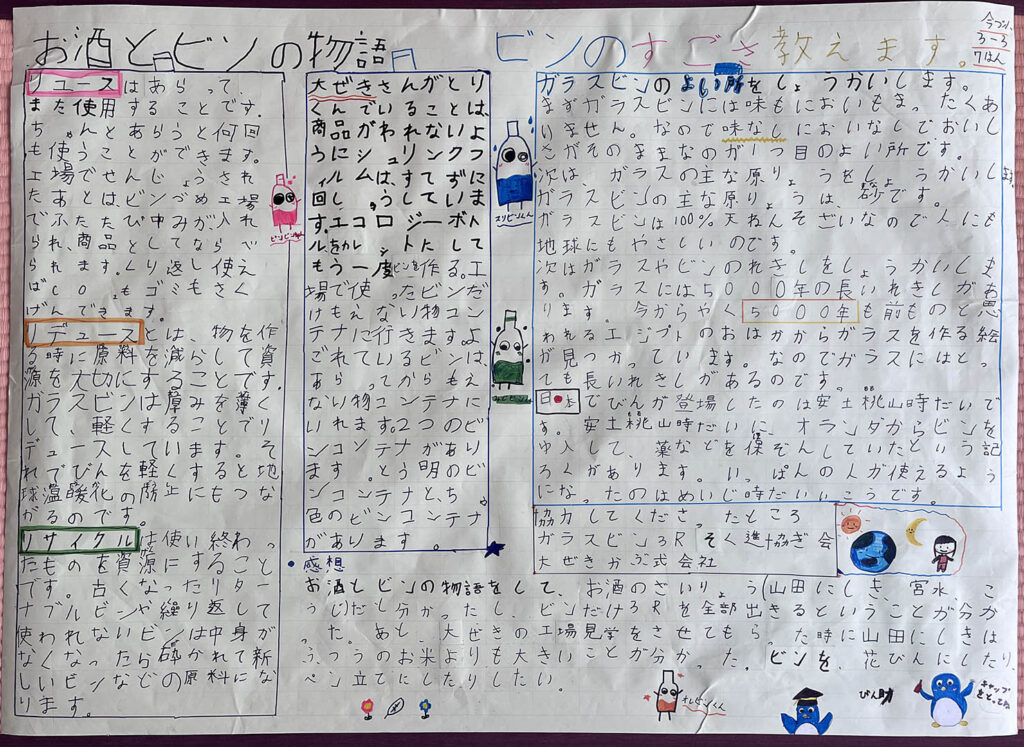 お酒とビンの物語
ビンのすごさ教えます。
3-3
7はん
リユースはあらって、
また使用することです。
ちゃんとあらうと何回
も使うことができます。
工場でせんじょうされ
たあとは、ビンづめ工場
でふたたび中みが入れ
られ、商品としてならべ
られます。くり返し使え
ば
ゴミもさく
げんできます。
リデュースとは、物を作
る時に原料を減らして資
源を大切にすることです。
ガラスビンは厚みを薄く
して、軽くすることでリ
デュースしています。そ
れでびんを軽くすると地
球温暖化の防止にもつな
がるのです。
リサイクルは使い終わっ
たものを資源にすること
です。古くなったリター
ナブルビンや繰り返して
使われないビンは中身が
なくなったら砕かれて新
しいビンなどの原料にな
ります。
大ぜきさんがとり
くんでいることは、
商品がわれないよ
うにシュリンクフ
ィルムは、すてずにま
回しゅうして
す。エコロジーボト
ルをカレットにして
もう一度ビンを作る。工
場で使ったビンだ
けもえない物コン
テナに行きますよ
ごれているビンは、
あらってからもえ
ない物コンテナに
いれます。2つのビ
ンコンテナがあり
ます。とう明のビ
ンコンテナと、ち
ゃ色のビンコンテナ
があります。
ガラスビンのよい所をしょうかいします。
まずガラスビンには味もにおいもまったくあ
りません。なので味なしにおいなしでおいし
さがそのままなのが1つ目のよい所です。
次は、ガラスの主な原りょうをしょうかいします。
ガラスビンの主な原りょうは、砂です。
ガラスビンは100%天ねんそざいなので人にも
地球にもやさしいのです。
次はガラスやビンのれきしをしょうかいしま
す。ガラスには5000年の長いれきしがあ
ります。今からやく5000年も前ものと思
われるエジプトのおはかからガラスを作る絵
が見つかっています。なのでガラスにはと
ても長いれきしがあるのです。
日本でびんが登場したのは安土桃山時だいで
す。安土桃山時だいに、オランダからビンを
ゆ入して、薬などを保ぞんしていたという記
ろくがあります。いっぱんの人が使えるよう
になったのはめいじ時だいいこうです。
協力してくださったところ
ガラスビン3Rそく進協ぎ会
大ぜきかぶ式会社
感想
お酒とビンの物語をして、お酒のざいりょう(山田にしき、宮水、こ
うじ)だし分かったし、ビンだけ3Rを全部出きるということが分か
った。あと、大ぜきの工場見学をさせてもらった時に山田にしきは
ふつうのお米よりも大きいことが分かった。ビンを、花びんにしたり、
ペン立てにしたりしたい。
びん助
キャップ
をとってね